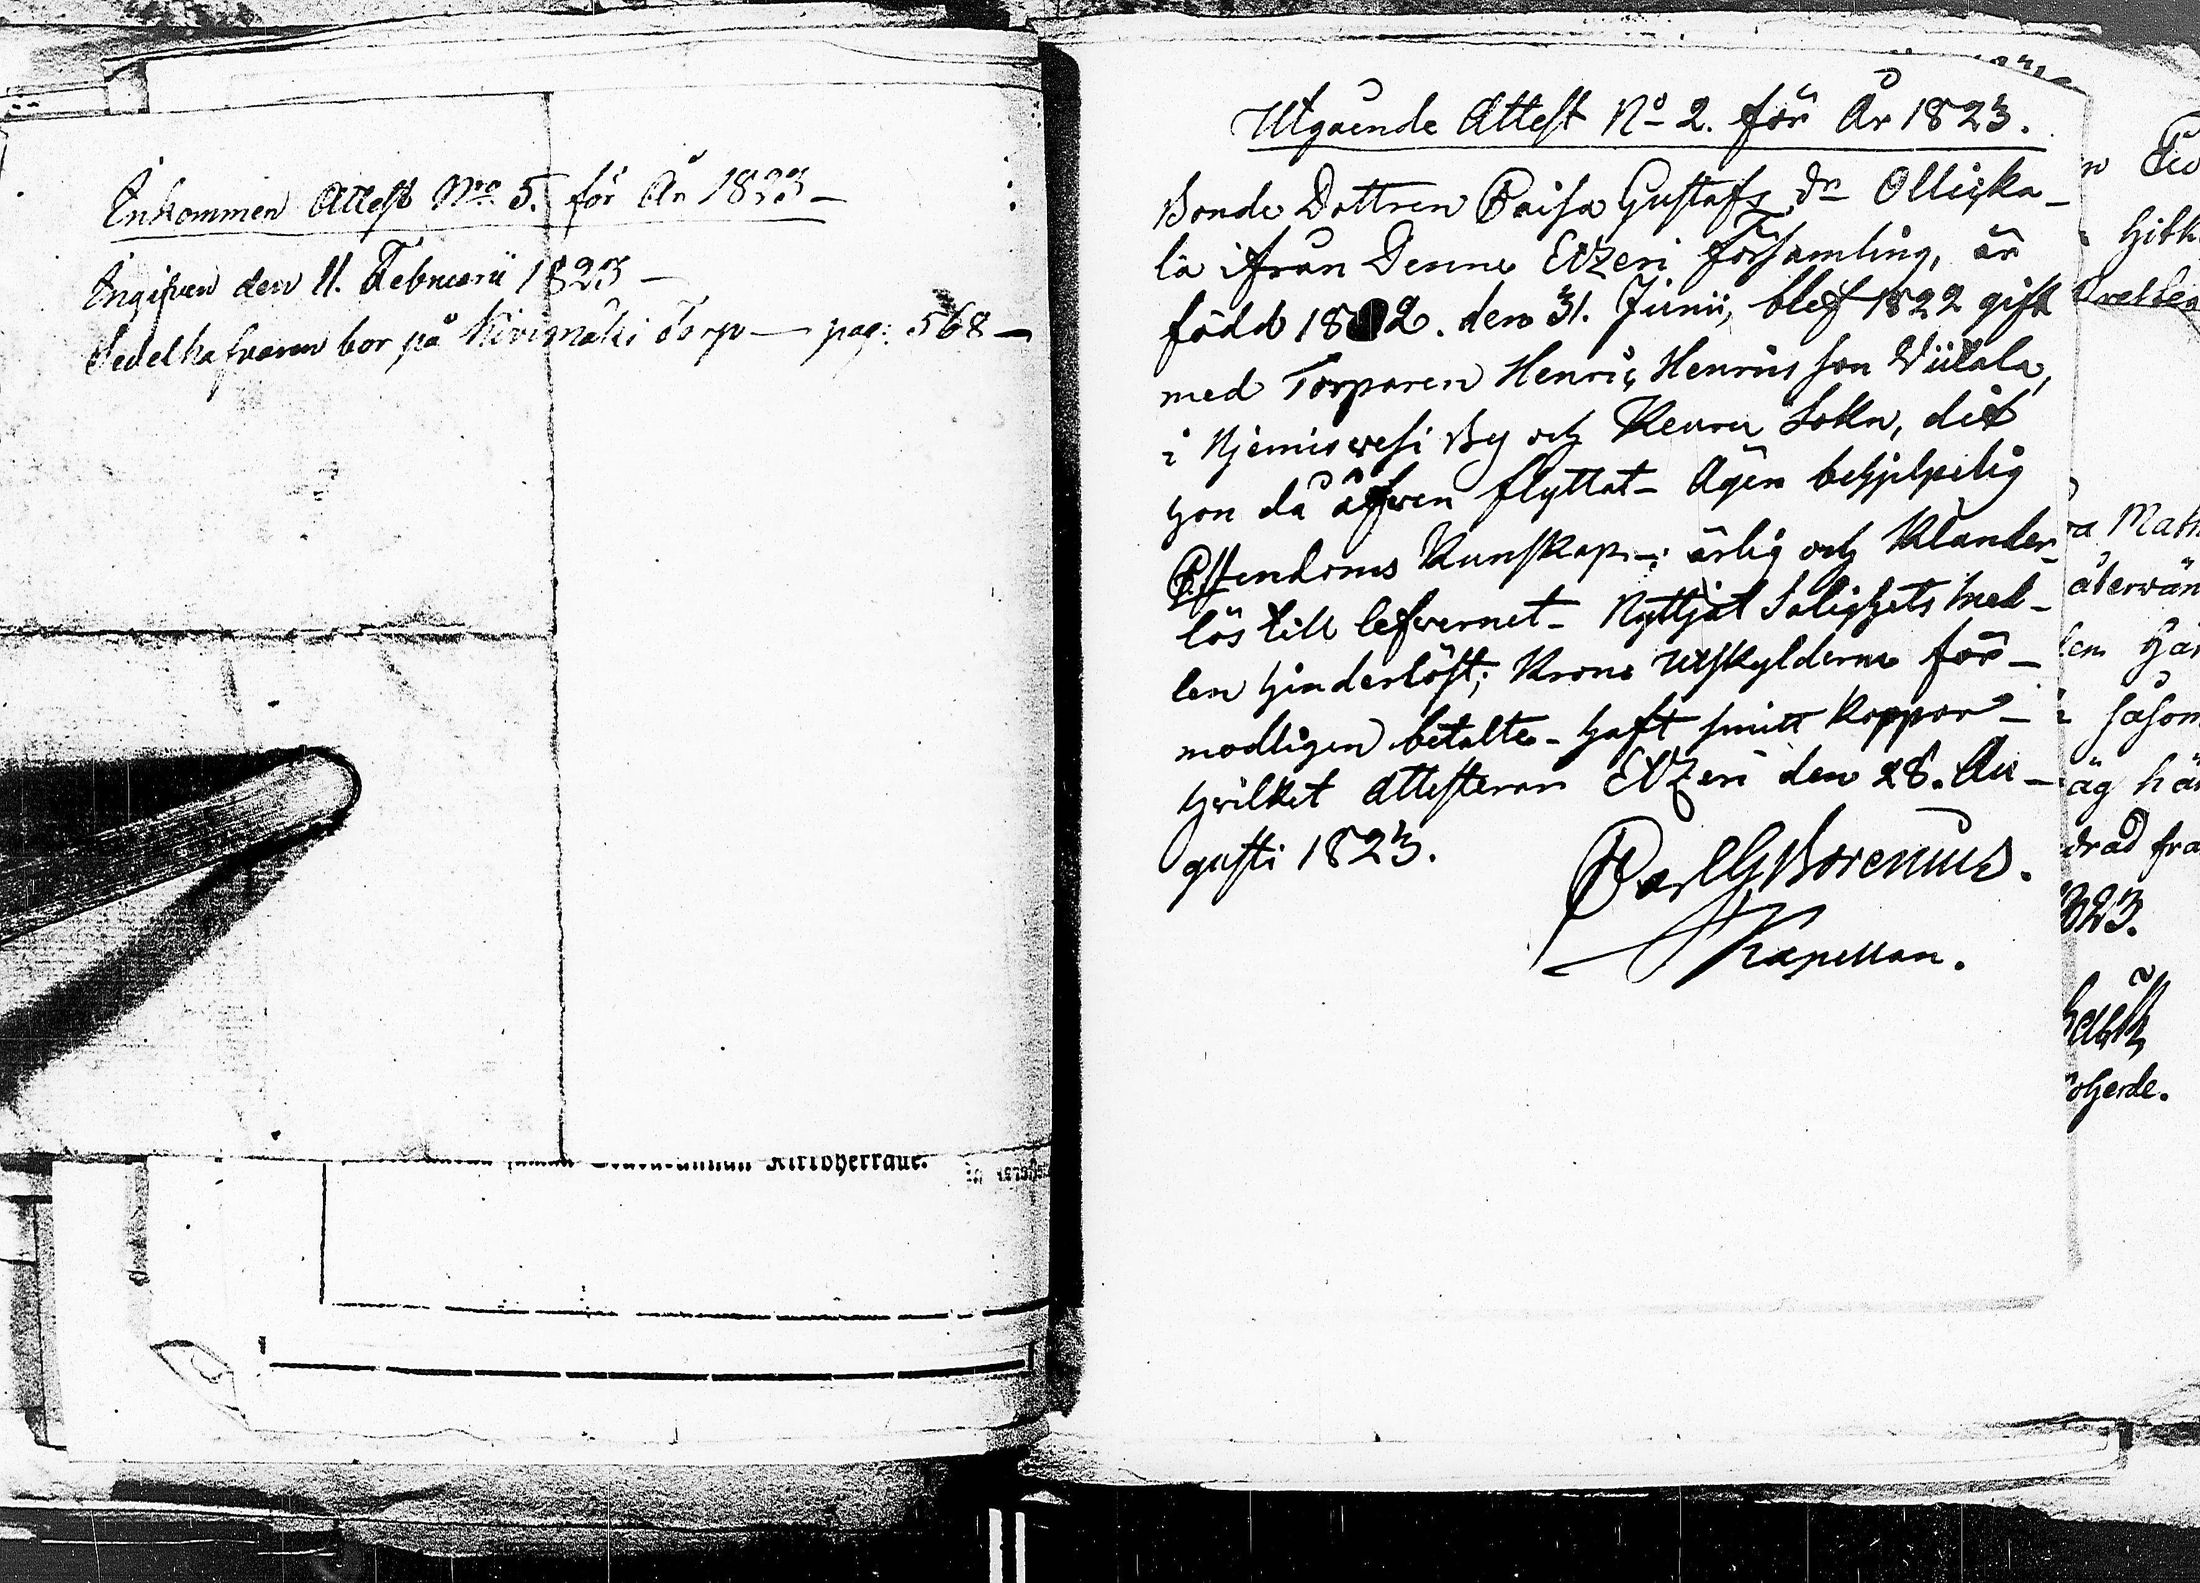 Inkommen Attest No 5. för År 1823 –
Ingifven den 11. Februarii 1823 –
Sedelhafvaren bor på Kivimäki Torp – pag: 568 –
Kirkoherralle.
Utgående Attest No 2. för År 1823.
Bonde Dottren Caisa Gustafs Dr Ollicka-
la ifrån Denne Etzeri Församling, är
född 1802. den 31. Junii, blef 1822 gift
med Torparen Henric Henrics son Viitala,
i Njemisvesi By och Keuru Sokn, dit
hon då äfwen flyttat – Ägen behjelpelig
Christendoms Kunskap –; ärlig och Klander-
lös till lefwernet – Nyttjat Salighets med-
len hinderlöst; Krono Utskylderne för-
modligen betalte – haft smitt Koppor –
hwilket attesterar Etzeri den 28. Au-
gusti 1823.
Carl G Borenius.
Kapellan.